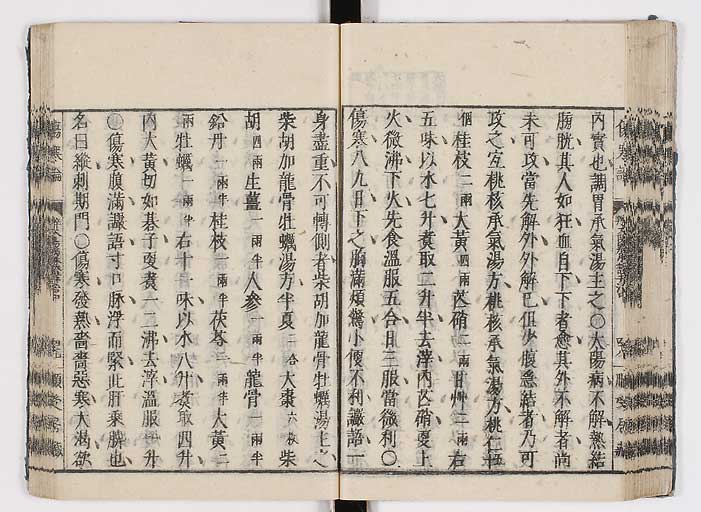 内實也調胃承氣湯主之〇太陽病不解熱結
膀胱其人如狂血自下下者愈其外不解者尚
未可攻當先解外外解已但少腹急結者乃可
攻之宜桃核承氣湯方桃核承氣湯方桃仁五十
個桂枝二兩大黃四兩芒硝二兩甘草二兩右
五味以水七升煑取二升半去滓內芒硝更上
火微沸下火先食溫服五合日三服當微利〇
傷寒八九日下之胸滿煩驚小便不利讝語一
身盡重不可轉側者柴胡加龍骨牡蠣湯主之
柴胡加龍骨牡蠣湯方半夏二合大棗六枚柴
胡四兩生薑一兩半人參一兩半龍骨一兩半
鉛丹一兩半桂枝一兩半茯苓一兩半大黃二
兩牡蠣一兩半右十一味以水八升煑取四升
內大黃切如碁子更煑一二沸去滓溫服一升
〇傷寒腹滿讝語寸口脉浮而緊此肝乘脾也
名曰縱刺期門〇傷寒發熱嗇嗇惡寒大渴欲
傷寒論